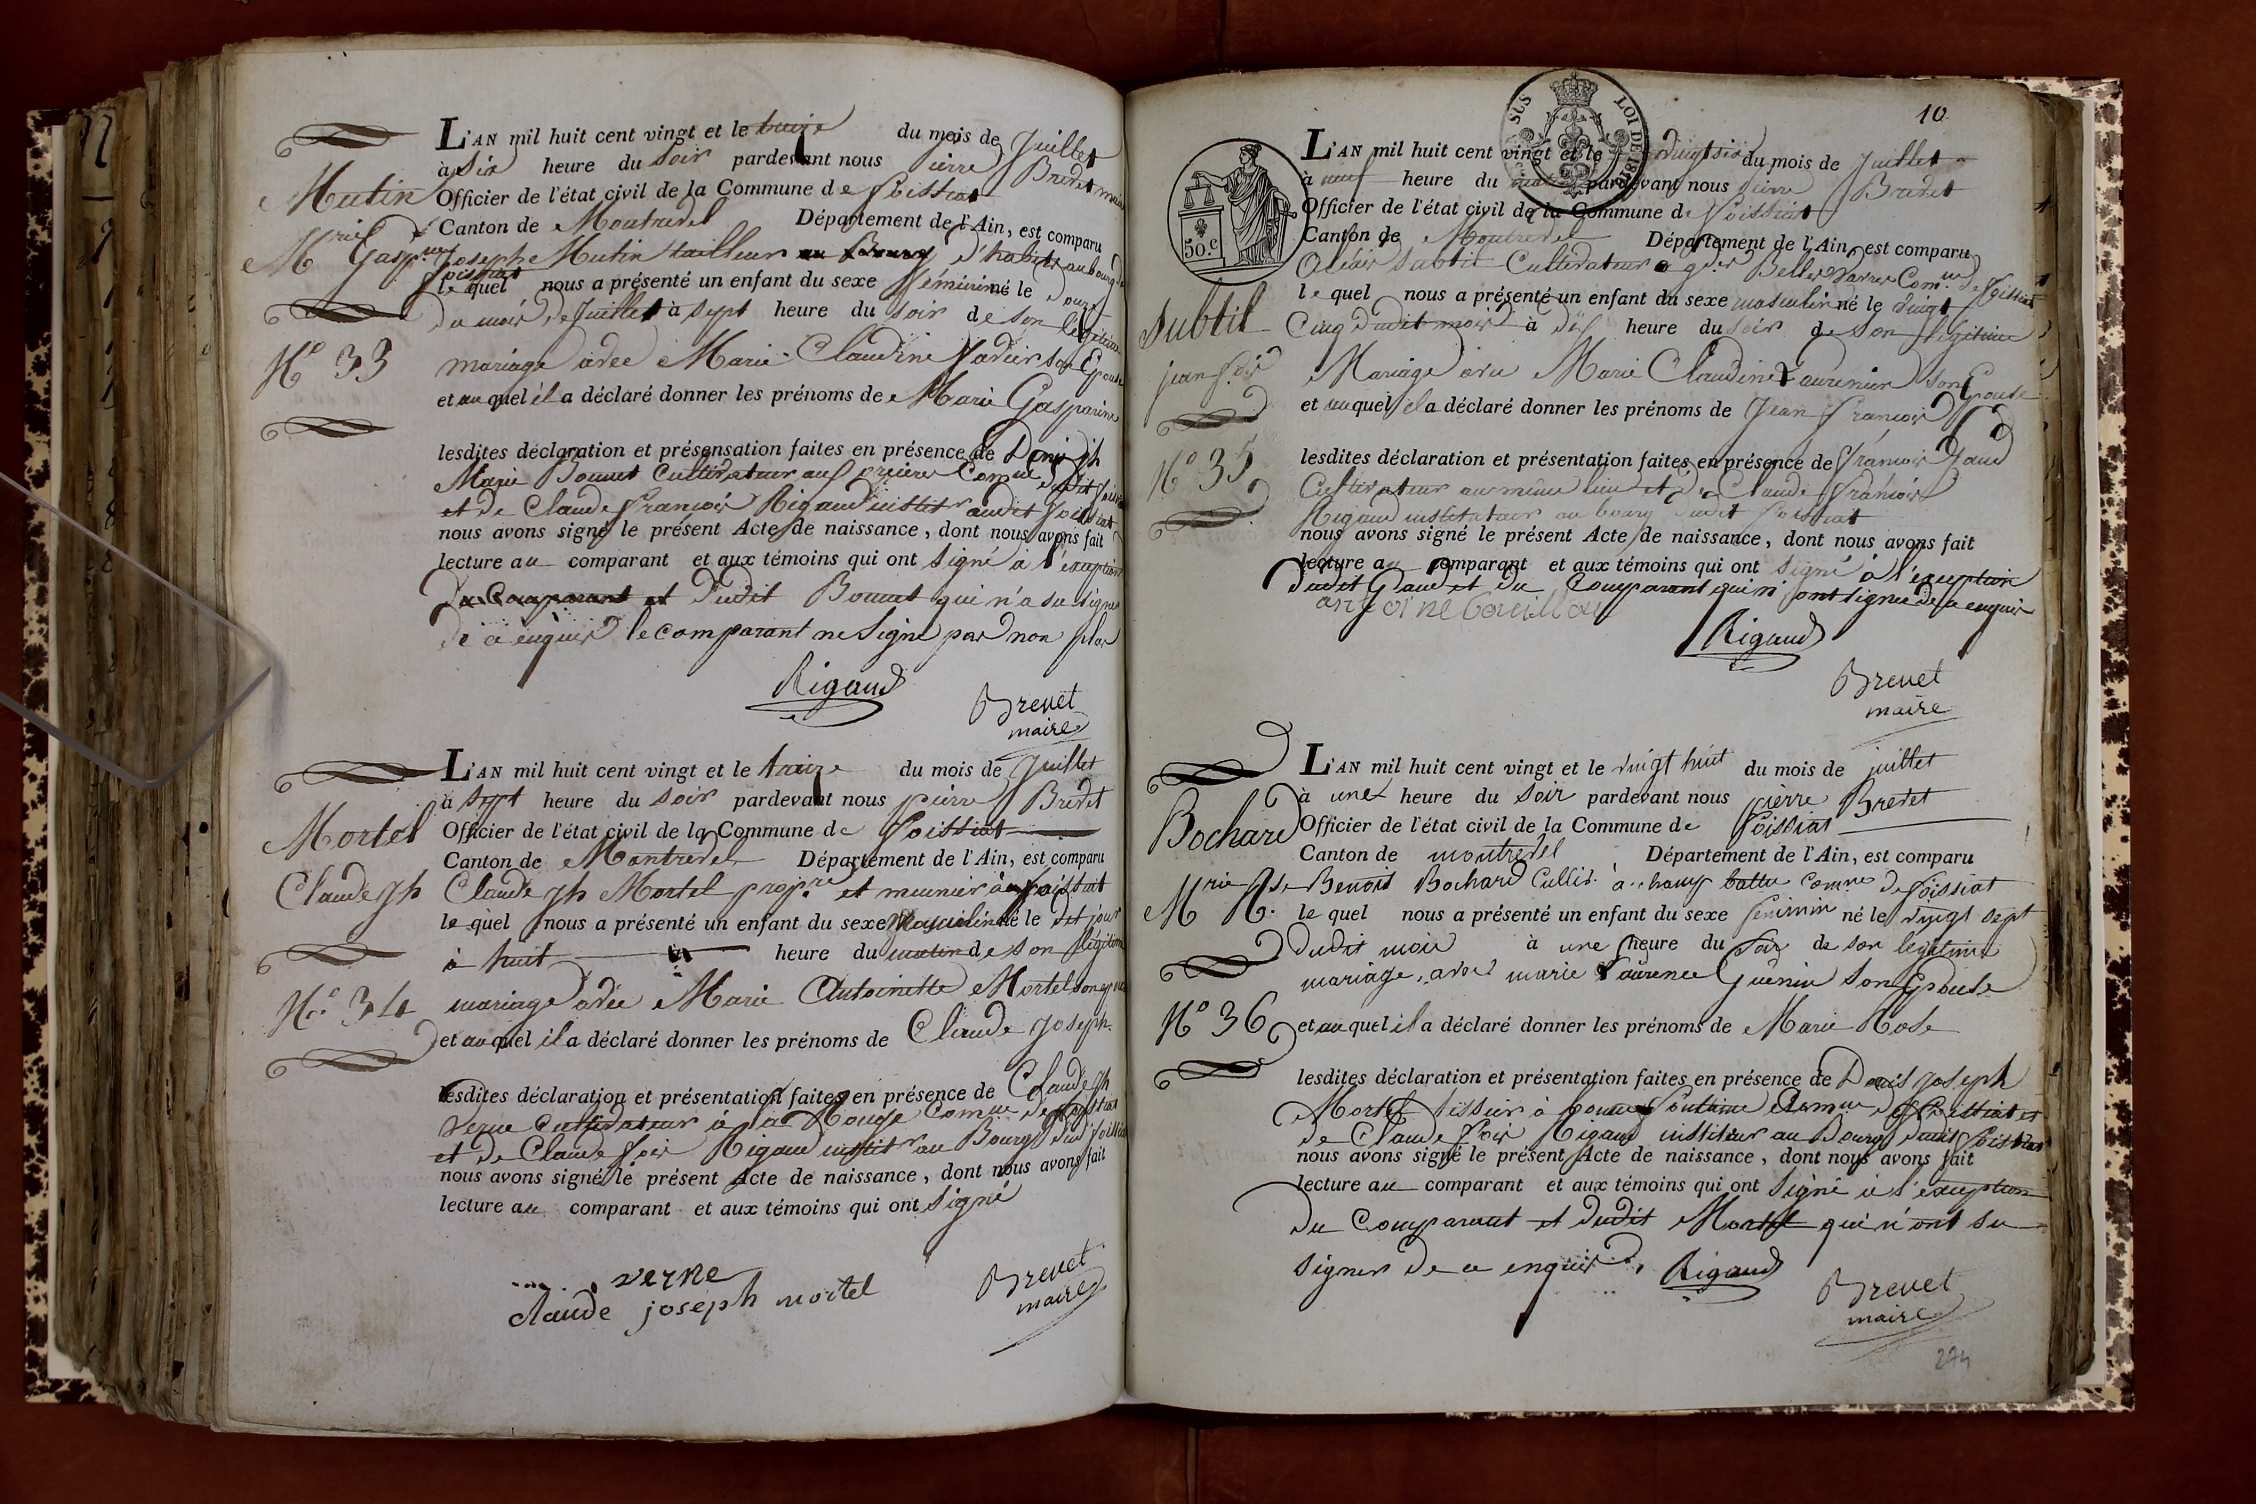 Mutin
Mrie Gaspne
N° 33
L'AN mil huit cent vingt et le treize du mois de Juillet
à six heure du soir pardevant nous pierre Brevet maire
Officier de l'état civil de la Commune de foissiat
Canton de Montrevel Département de l'Ain, est comparu
Joseph Mutin tailleur d'habits au bourg de
foissiat
le quel nous a présenté un enfant du sexe féminin né le douze
du mois de Juillet à sept heure du soir de son légitime
mariage avec Marie Claudine son Epouse
et auquel il a déclaré donner les prénoms de Marie Gasparine
lesdites déclaration et présensation faites en présence de Denis jh
Marie Bonnet Cultivateur aux Comne dudit foissiat
et de Claude françois Rigaud institr audit foissiat
nous avons signé le présent Acte de naissance, dont nous avons fait
lecture au comparant et aux témoins qui ont signé à l'exception
du Comparant et dudit Bonnet qui n'a su signer
de ce enquis le comparant ne signe pas non plus
Rigaud
Brevet
maire
Mortel
Claude jh
N° 34
L'AN mil huit cent vingt et le treize du mois de Juillet
à sept heure du soir pardevant nous pierre Brevet
Officier de l'état civil de la Commune de foissiat
Canton de Montrevel Département de l'Ain, est comparu
Claude jh Mortel propre et meunier à foissiat
le quel nous a présenté un enfant du sexe Masculin né le dit jour
à huit heure du matin de son légitime
mariage avec Marie Antoinette Mortel son epouse
et auquel il a déclaré donner les prénoms de Claude joseph
lesdites déclaration et présentation faites en présence de Claude jh
Verne Cultivateur à la Rouge Comne de foissiat
et de Claude fois Rigaud institr au Bourg dud foissiat
nous avons signé le présent Acte de naissance, dont nous avons fait
lecture au comparant et aux témoins qui ont signé
verne
claude joseph mortel
Brevet
maire
10
SLS LOI DE 1816
50.c
Subtil
jean fois
N° 35
L'AN mil huit cent vingt et le vingt six du mois de Juillet
à neuf heure du matin pardevant nous pierre Brevet
Officier de l'état civil de la Commune de foissiat
Canton de Montrevel Département de l'Ain, est comparu
Subtil Cultivateur Comne de foissiat
le quel nous a présenté un enfant du sexe masculin né le vingt
Cinq dudit mois à dix heure du soir de son légitime
Mariage avec Marie Claudine Laurencin son Epouse
et auquel il a déclaré donner les prénoms de Jean françois
lesdites déclaration et présentation faites en présence de françois
Cultivateur au même lieu et de Claude françois
Rigaud instituteur au bourg dudit foissiat
nous avons signé le présent Acte de naissance, dont nous avons fait
lecture au comparant et aux témoins qui ont signé à l'exception
dudit et du Comparant qui n'ont signer de ce enquis
Rigaud
Brevet
maire
Bochard
Mrie Rse
N° 36
L'AN mil huit cent vingt et le vingt huit du mois de juillet
à une heure du soir pardevant nous pierre Brevet
Officier de l'état civil de la Commune de foissiat
Canton de montrevel Département de l'Ain, est comparu
Benoit Bochard Cultiv. à champ battu comne de foissiat
le quel nous a présenté un enfant du sexe feminin né le vingt sept
dudit mois à une heure du soir de son legitime
mariage, avec marie Laurence Guenin son Epouse
et auquel il a déclaré donner les prénoms de Marie Rose
lesdites déclaration et présentation faites en présence de Denis joseph
Mortel tissier à bonne fontaine Comne de foissiat et
de Claude fois Rigaud instituteur au Bourg dudit foissiat
nous avons signé le présent Acte de naissance, dont nous avons fait
lecture au comparant et aux témoins qui ont signé à l'exception
du Comparant et dudit Mortel qui n'ont su
signer de ce enquis, Rigaud
Brevet
maire